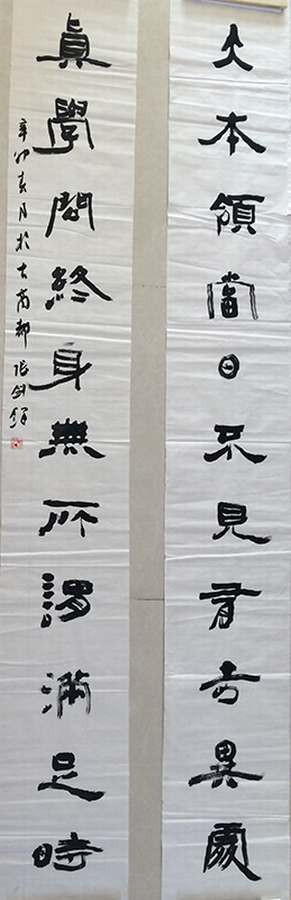 大本領當日不見有奇異處
眞學問終身無所謂滿足時
辛卯春月於古商都張剑